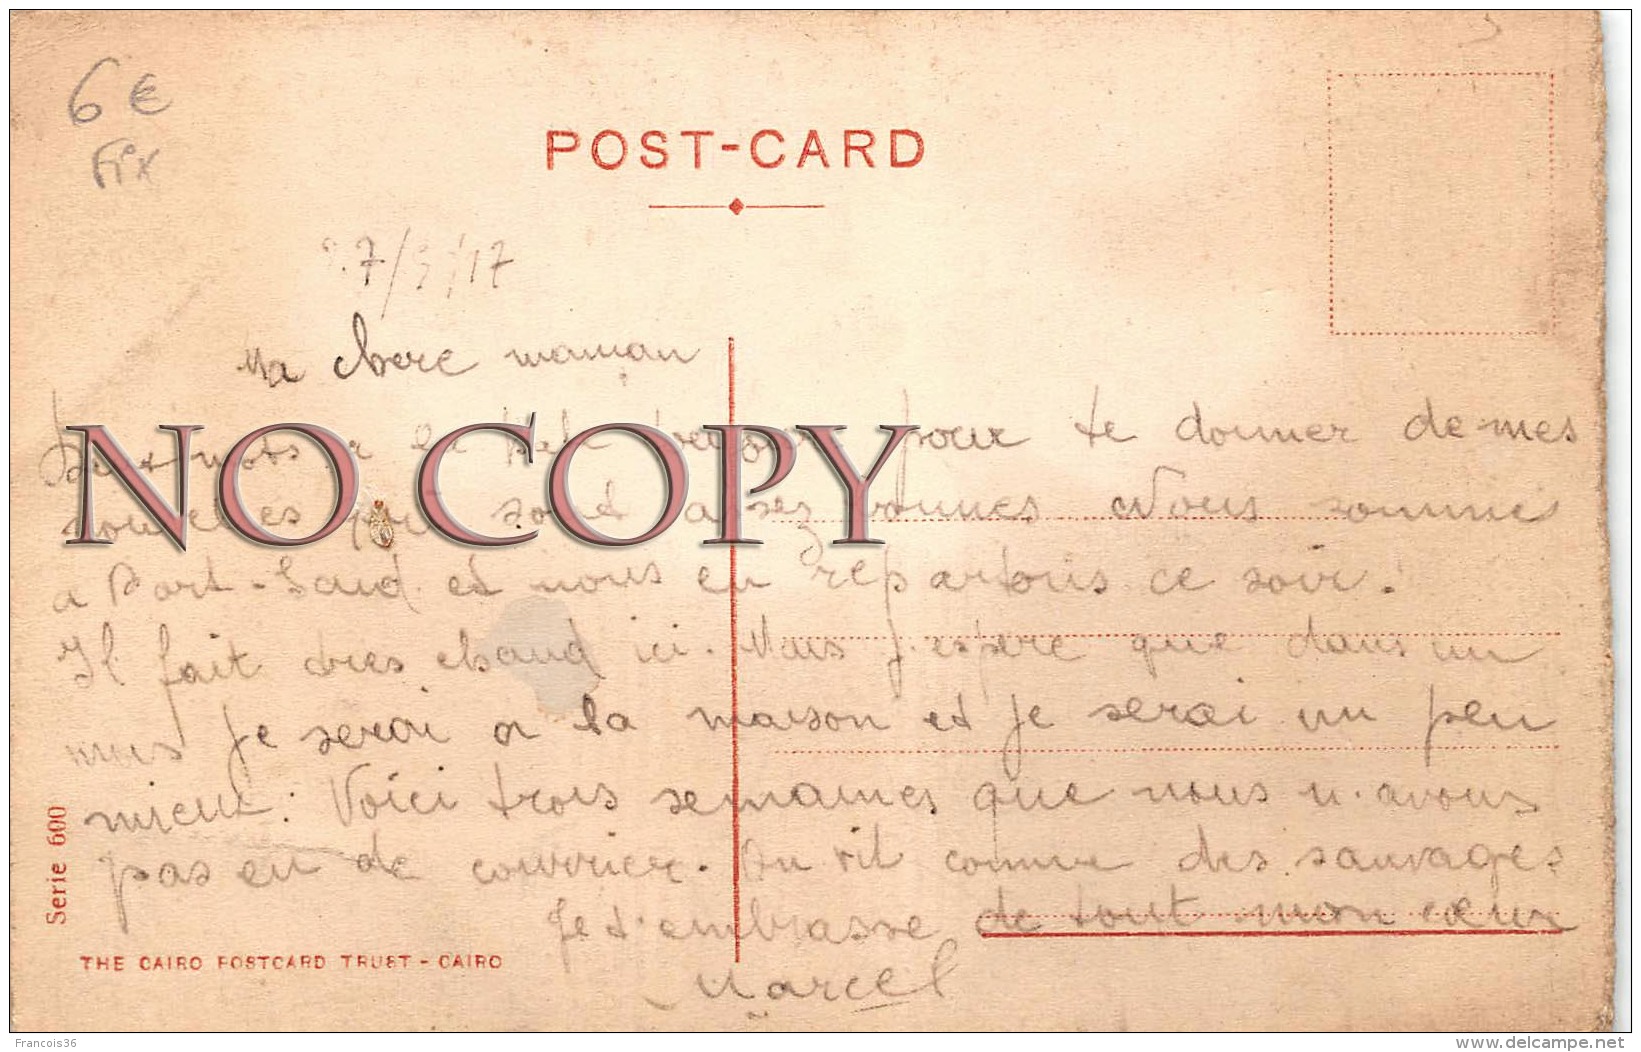 6 €
Fix
POST-CARD
7/ /17
Ma chere maman
mots pour te donner de mes
nouvelles qui sont assez bonnes Nous sommes
a Port-Said et nous en repartons ce soir.
Il fait tres chaud ici. Mais j'espere que dans un
mois je serai a la maison et je serai un peu
mieux. Voici trois semaines que nous n'avons
pas eu de courrier. On vit comme des sauvages
Je t'embrasse de tout mon cœur
Marcel
Serie 600
THE CAIRO POSTCARD TRUST - CAIRO
NO COPY
Francois36
www.delcampe.net